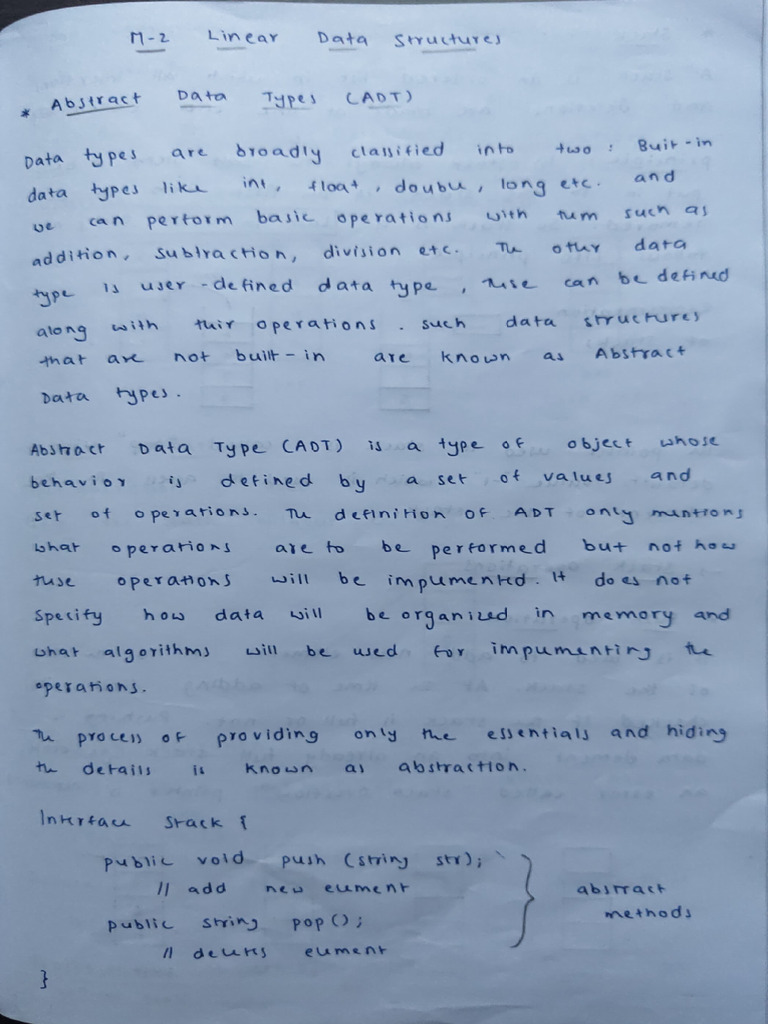 M-2 Linear Data Structures
* Abstract Data Types (ADT)
Data types are broadly classified into two : Buit-in
data types like int, float, double, long etc. and
we can perform basic operations with them such as
addition, subtraction, division etc. The other data
type is user-defined data type, these can be defined
along with their operations. such data structures
that are not built-in are known as Abstract
Data types.
Abstract Data Type (ADT) is a type of object whose
behavior is defined by a set of values and
set of operations. The definition of ADT only mentions
what operations are to be performed but not how
these operations will be implemented. It does not
Specify how data will be organized in memory and
what algorithms will be used for implementing the
operations.
The process of providing only the essentials and hiding
the details is known as abstraction.
Interface Stack {
public void push (string str);
// add new element
public string pop();
// deletes element
}
abstract
methods